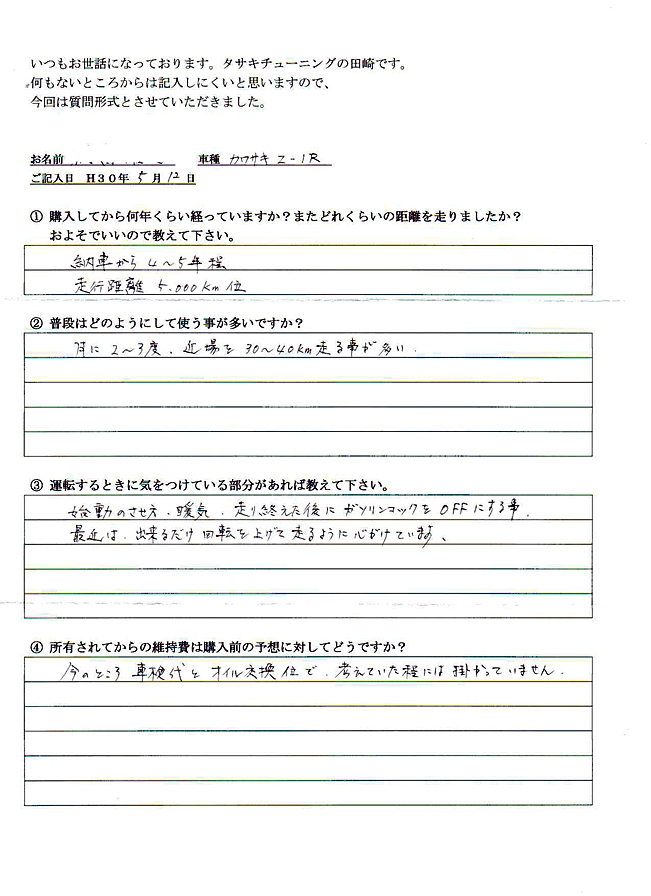 いつもお世話になっております。タサキチューニングの田崎です。
何もないところからは記入しにくいと思いますので、
今回は質問形式とさせていただきました。
お名前 車種 カワサキ Z-1R
ご記入日 H30年 5月 12日
① 購入してから何年くらい経っていますか？またどれくらいの距離を走りましたか？
およそでいいので教えて下さい。
納車から 4～5年程
走行距離 5,000km位
② 普段はどのようにして使う事が多いですか？
月に 2～3度、近場を 30～40km走る事が多い.
③ 運転するときに気をつけている部分があれば教えて下さい。
始動のさせ方、暖気、走り終えた後にガソリンコックを OFFにする事.
最近は、出来るだけ回転を上げて走るように心がけています、
④ 所有されてからの維持費は購入前の予想に対してどうですか？
今のところ 車検代と オイル交換位で、考えていた程には掛かっていません.